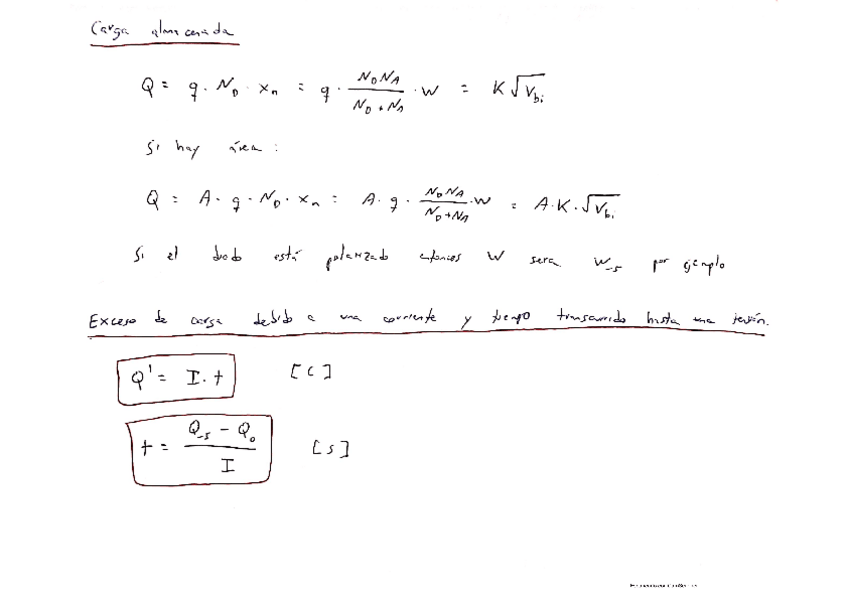 Carga almacenada
Q = q · N_D · x_n = q · \frac{N_D N_A}{N_D + N_A} · W = K \sqrt{V_{bi}}
Si hay área :
Q = A · q · N_D · x_n = A · q · \frac{N_D N_A}{N_D + N_A} · W = A · K · \sqrt{V_{bi}}
Si el diodo está polarizado entonces W sera W_{-5} por ejemplo
Exceso de carga debido a una corriente y tiempo transcurrido hasta una tensión.
Q' = I · t [C]
t = \frac{Q_{-5} - Q_0}{I} [s]